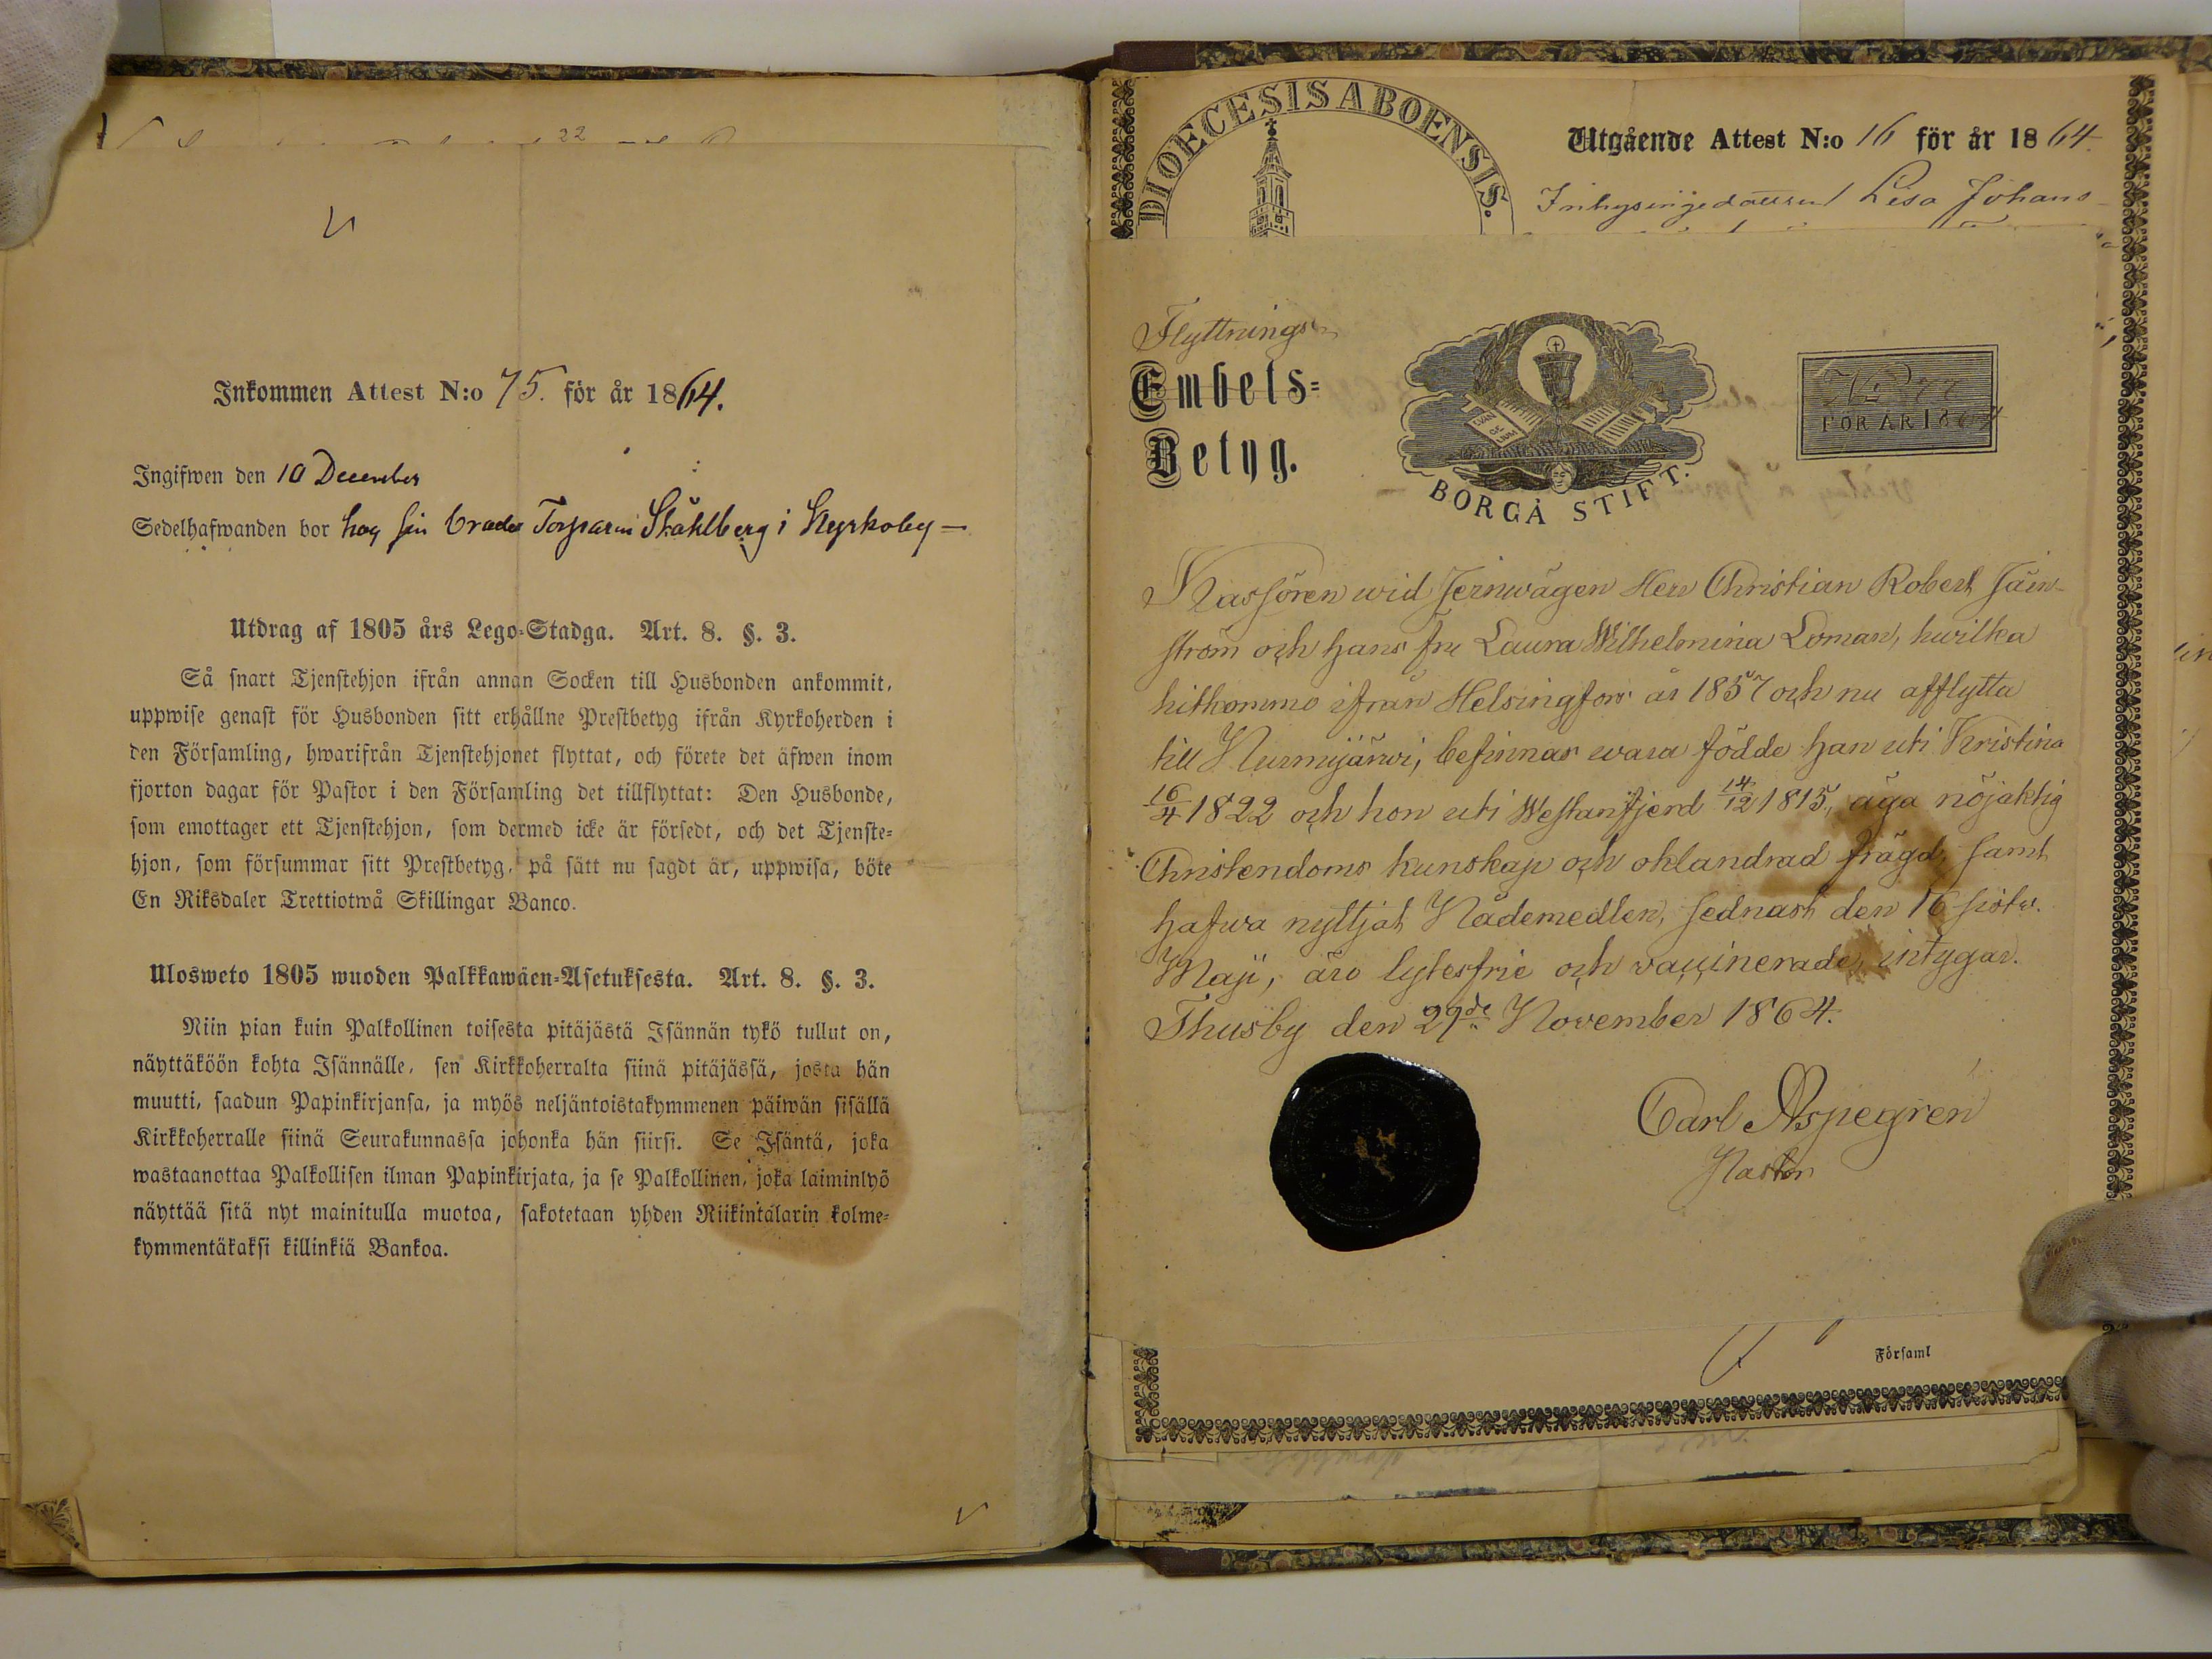 22
Inkommen Attest N:o 75. för år 1864.
Ingifwen den 10 December
Sedelhafwanden bor hos sin broder Torparen Ståhlberg i Kyrkoby –
Utdrag af 1805 års Lego-Stadga. Art. 8. §. 3.
Så snart Tjenstehjon ifrån annan Socken till Husbonden ankommit,
uppwise genast för Husbonden sitt erhållne Prestbetyg ifrån Kyrkoherden i
den Församling, hwarifrån Tjenstehjonet flyttat, och förete det äfwen inom
fjorton dagar för Pastor i den Församling det tillflyttat: Den Husbonde,
som emottager ett Tjenstehjon, som dermed icke är försedt, och det Tjenste-
hjon, som försummar sitt Prestbetyg, på sätt nu sagdt är, uppwisa, böte
En Riksdaler Trettiotwå Skillingar Banco.
Ulosweto 1805 wuoden Palkkawäen-Asetuksesta. Art. 8. §. 3.
Niin pian kuin Palkollinen toisesta pitäjästä Isännän tykö tullut on,
näyttäköön kohta Isännälle, sen Kirkkoherralta siinä pitäjässä, josta hän
muutti, saadun Papinkirjansa, ja myös neljäntoistakymmenen päiwän sisällä
Kirkkoherralle siinä Seurakunnassa johonka hän siirsi. Se Isäntä, joka
wastaanottaa Palkollisen ilman Papinkirjata, ja se Palkollinen, joka laiminlyö
näyttää sitä nyt mainitulla muotoa, sakotetaan yhden Riikintalarin kolme-
kymmentäkaksi killinkiä Bankoa.
DIOECESIS ABOENSIS.
Utgående Attest N:o 16 för år 1864.
Lisa Johans-
Flyttnings
Embets-
Betyg.
EVAN
GE
LIUM
BORGÅ STIFT.
FÖR ÅR 1864
Kassören wid Jernwägen Herr Christian Robert Jäin-
ström och hans fru Laura Wilhelmina Loman, hwilka
hitkommo ifrån Helsingfors år 1857 och nu afflytta
till Nurmijärwi, befinnas wara födde han uti Kristina
16/4 1822 och hon uti Westanfjerd 14/12 1815, äga nöjaktig
Christendoms kunskap och oklandrad frägd, samt
hafwa nyttjat Nådemedlen, sednast den 16 sistw.
Maji, äro lytesfrie och vaccinerade, intygar.
Thusby den 29de November 1864.
Carl Aspegren
Pastor
Församl